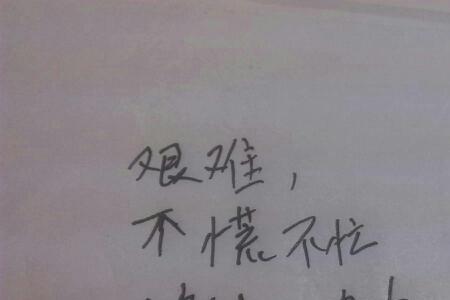 艰难，
不慌不忙